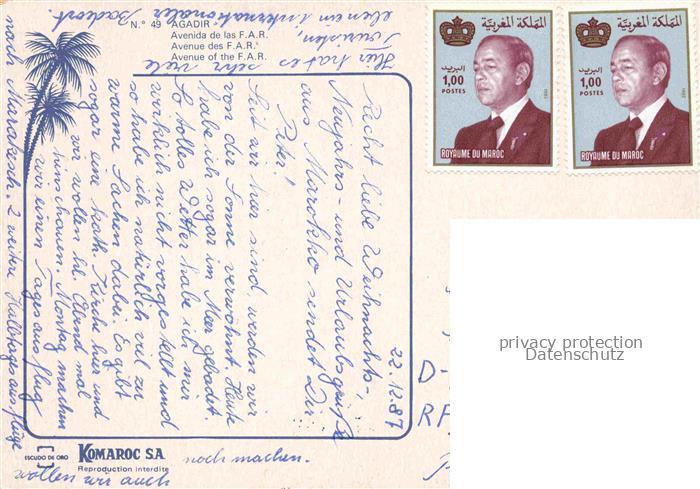 N.° 49 AGADIR
Avenida de las F.A.R.
Avenue des F.A.R.
Avenue of the F.A.R.
المملكة المغربية
البريد
1,00
POSTES
1987
ROYAUME DU MAROC
المملكة المغربية
البريد
1,00
POSTES
1987
ROYAUME DU MAROC
22.12.87
Recht liebe Weihnachts-,
Neujahrs- und Urlaubsgrüße
aus Marokko sendet Dir
Peter!
Seit wir hier sind, werden wir
von der Sonne verwöhnt. Heute
habe ich sogar im Meer gebadet.
So tolles Wetter habe ich mir
wirklich nicht vorgestellt und
so habe ich natürlich viel zu
warme Sachen dabei. Es gibt
sogar eine kath. Kirche hier und
wir wollen hl. Abend mal
hinschauen. Montag machen
wir einen Tagesausflug
nach Marakesch. 2 weitere Halbtagesausflüge
wollen wir auch
noch machen.
Hier hat es sehr viele
Touristen,
eben ein internationaler
Badeort.
D-
RF
privacy protection
Datenschutz
ESCUDO DE ORO
KOMAROC S.A.
Reproduction interdite